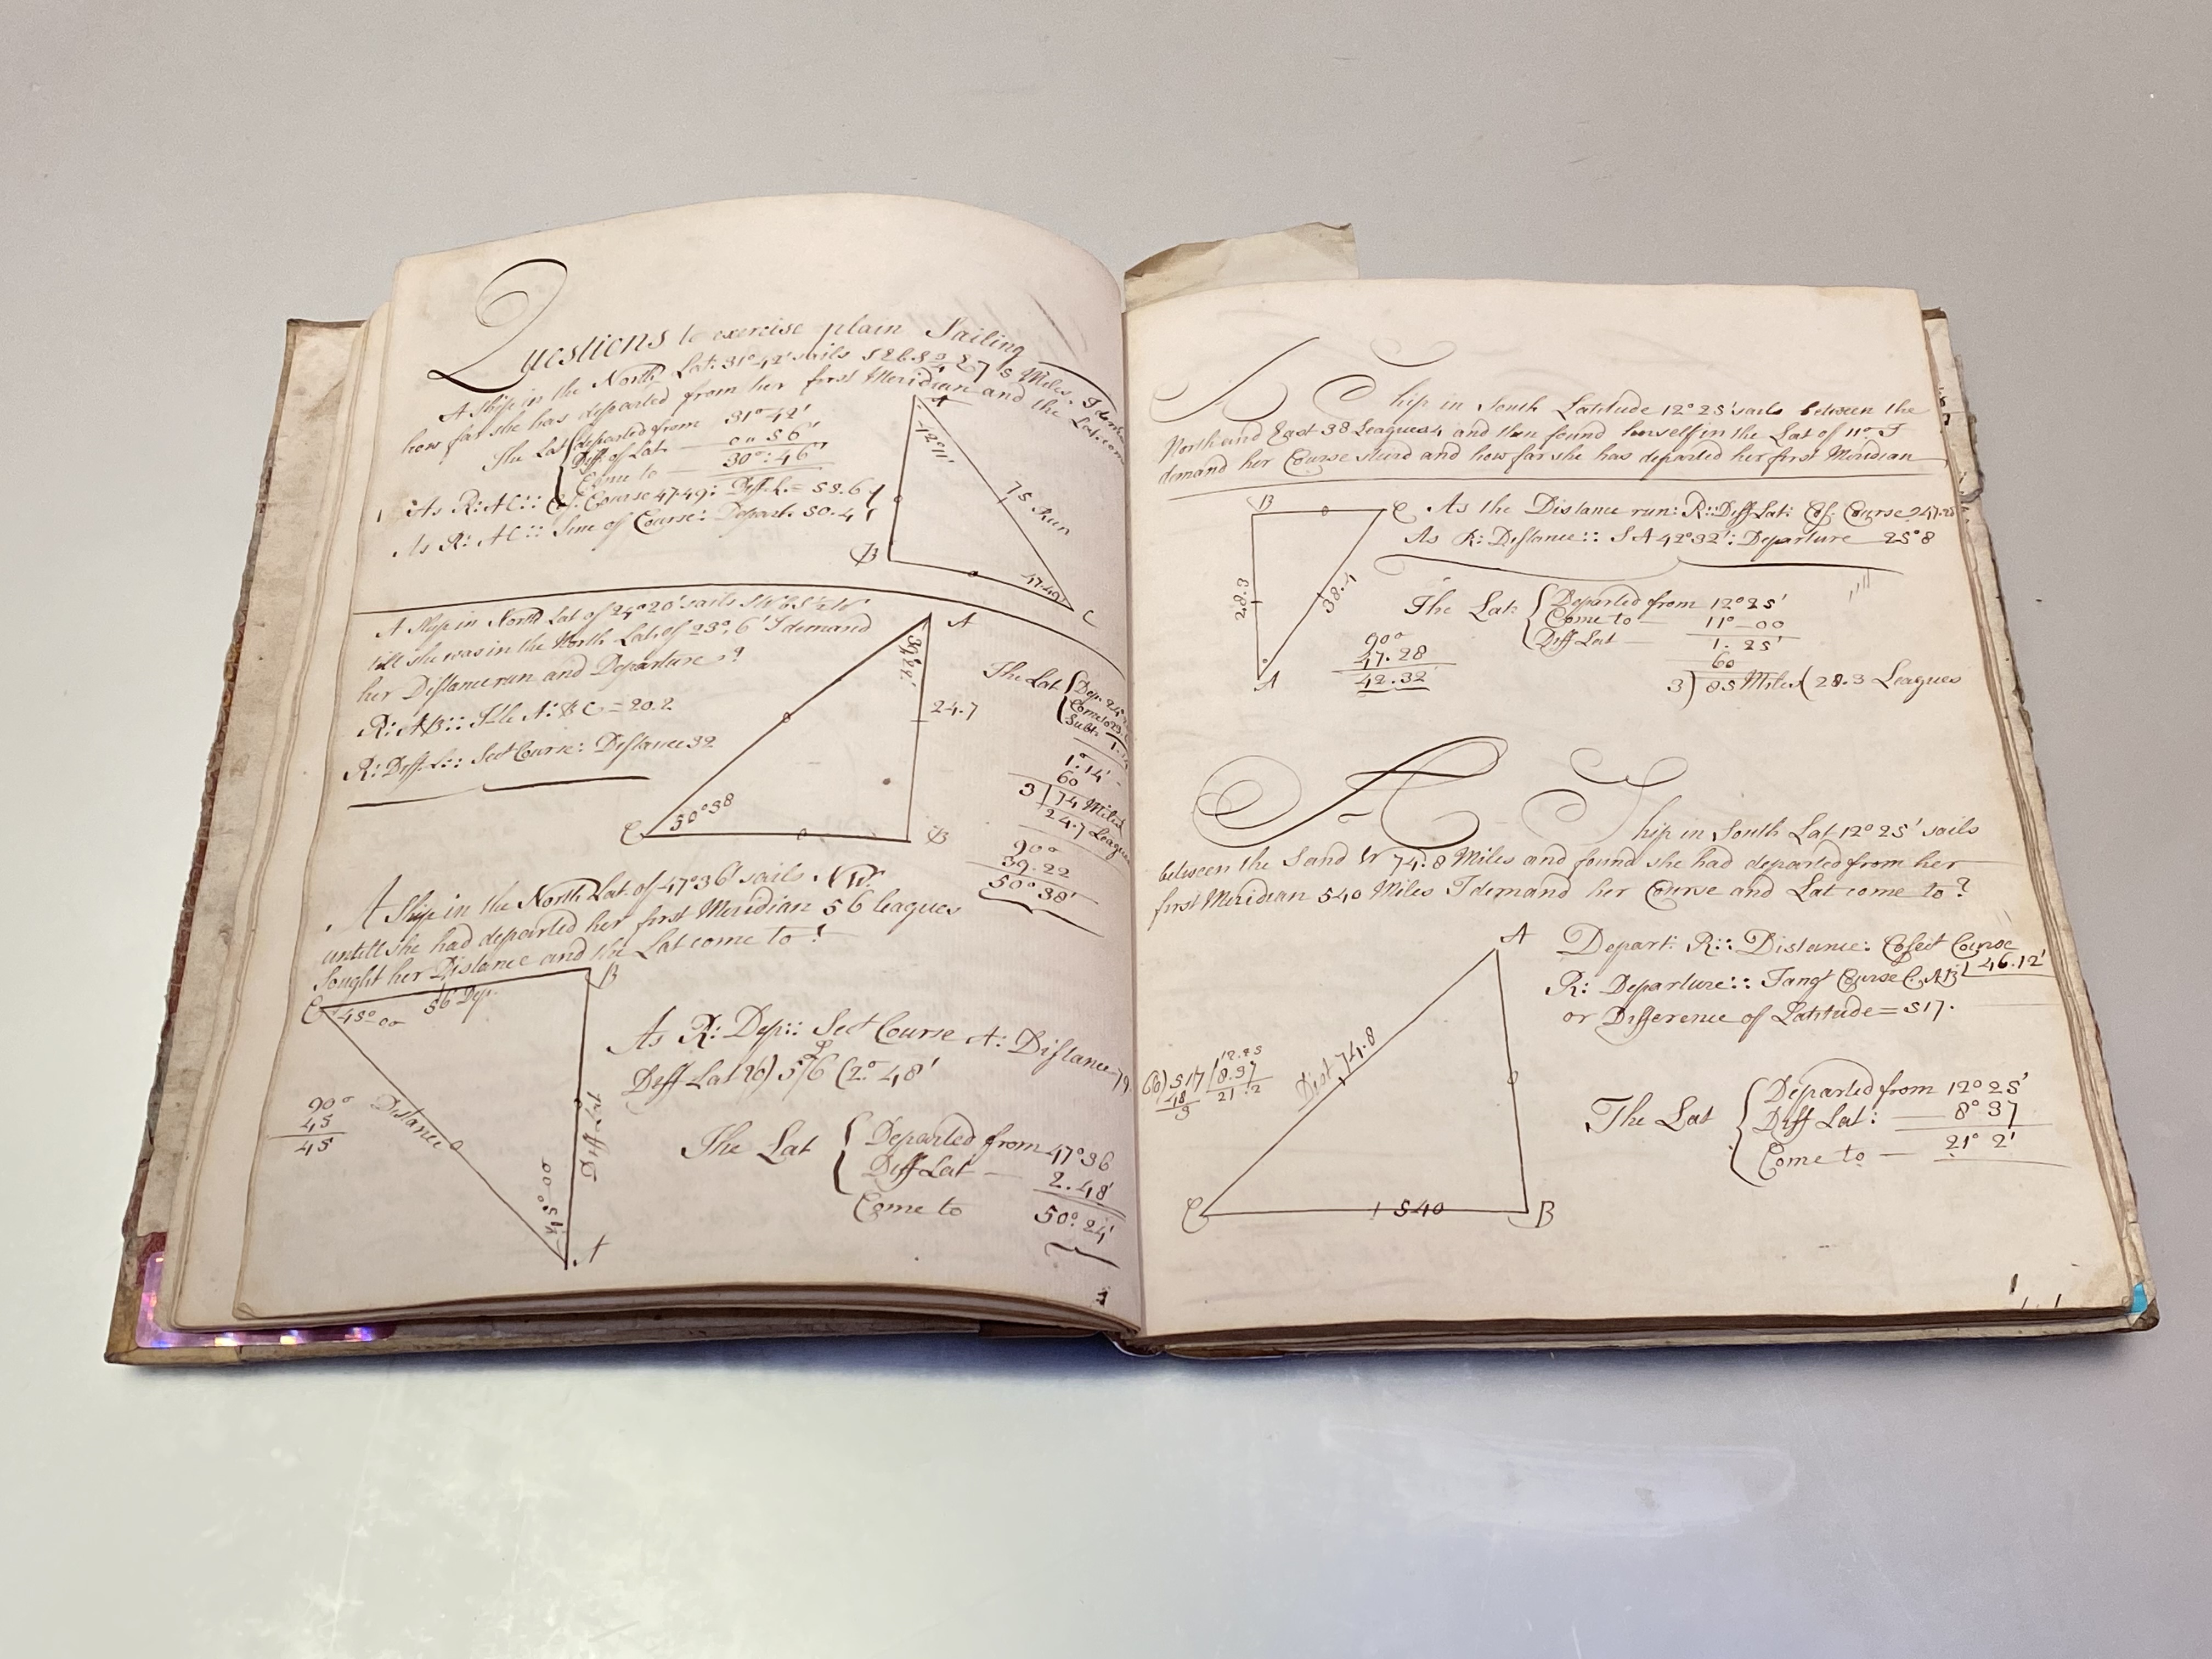 Questions to exercise plain Sailing
A Ship in the North Lat: 31°-42' sails SEbS 3/4 E 75 Miles. I demand
how far she has departed from her first Meridian and the Lat: com
The Lat { departed from 31°-42'
Diff. of Lat. — 0 56'
Come to — 30°:46'
As R: AC :: Cs. Course 47.49: Diff. L. =
As R: AC :: Sine of Course: Depart. 50.4
A
42°11'
75 Run
B
47.49
C
A Ship in North Lat of 24°20' sails SWbS ½ W
till she was in the North Lat. of 23°, 6' I demand
her Distance run and Departure?
R: AB :: A: BC = 20.2
R: Diff. L :: Sect Course: Distance 32
A
39°22'
24.7
C
50°38
B
The Lat { Dep. 24°
Come to 23.
Subt. 1.
1°.14'
60
3 ) 74 Miles
24.7 Leagues
90°
39.22
50°38'
A Ship in the North Lat. of 47°36' sails NW.
untill she had departed her first Meridian 56 leagues
Sought her Distance and the Lat come to?
C
B
45°00
56 Dep.
90°
45
45
Distance
Diff. Lat
45°00
A
As R: Dep :: Sect Course A: Distance 79.
Diff Lat 20) 56 (2° 48'
The Lat { Departed from 47°36
Diff Lat — 2.48'
Come to 50°.24'
Ship in South Latitude 12°25' sails between the
North and East 38 Leagues 4 and then found herself in the Lat of 11° I
demand her Course steerd and how far she has departed her first Meridian
B
C
28.3
38.4
A
As the Distance run: R :: Diff Lat: Cs. Course 47.28
As R: Distance :: S A 42°32': Departure 25°8
The Lat: { Departed from 12°25'
Come to — 11°—00
Diff Lat — 1. 25'
60
3) 85 Miles ( 28.3 Leagues
90°
47.28
42.32
A Ship in South Lat 12°25' sails
between the S and W 74.8 Miles and found she had departed from her
first Meridian 540 Miles I demand her Course and Lat come to?
A
Dist 74.8
C
540
B
60) 517 (8.37
48
3
12.25
21.2
Depart: R :: Distance: Cosect Course
R: Departure :: Tangt Course C. AB 46.12'
or Difference of Latitude = 517.
The Lat { Departed from 12°25'
Diff Lat: — 8°37
Come to — 21° 2'